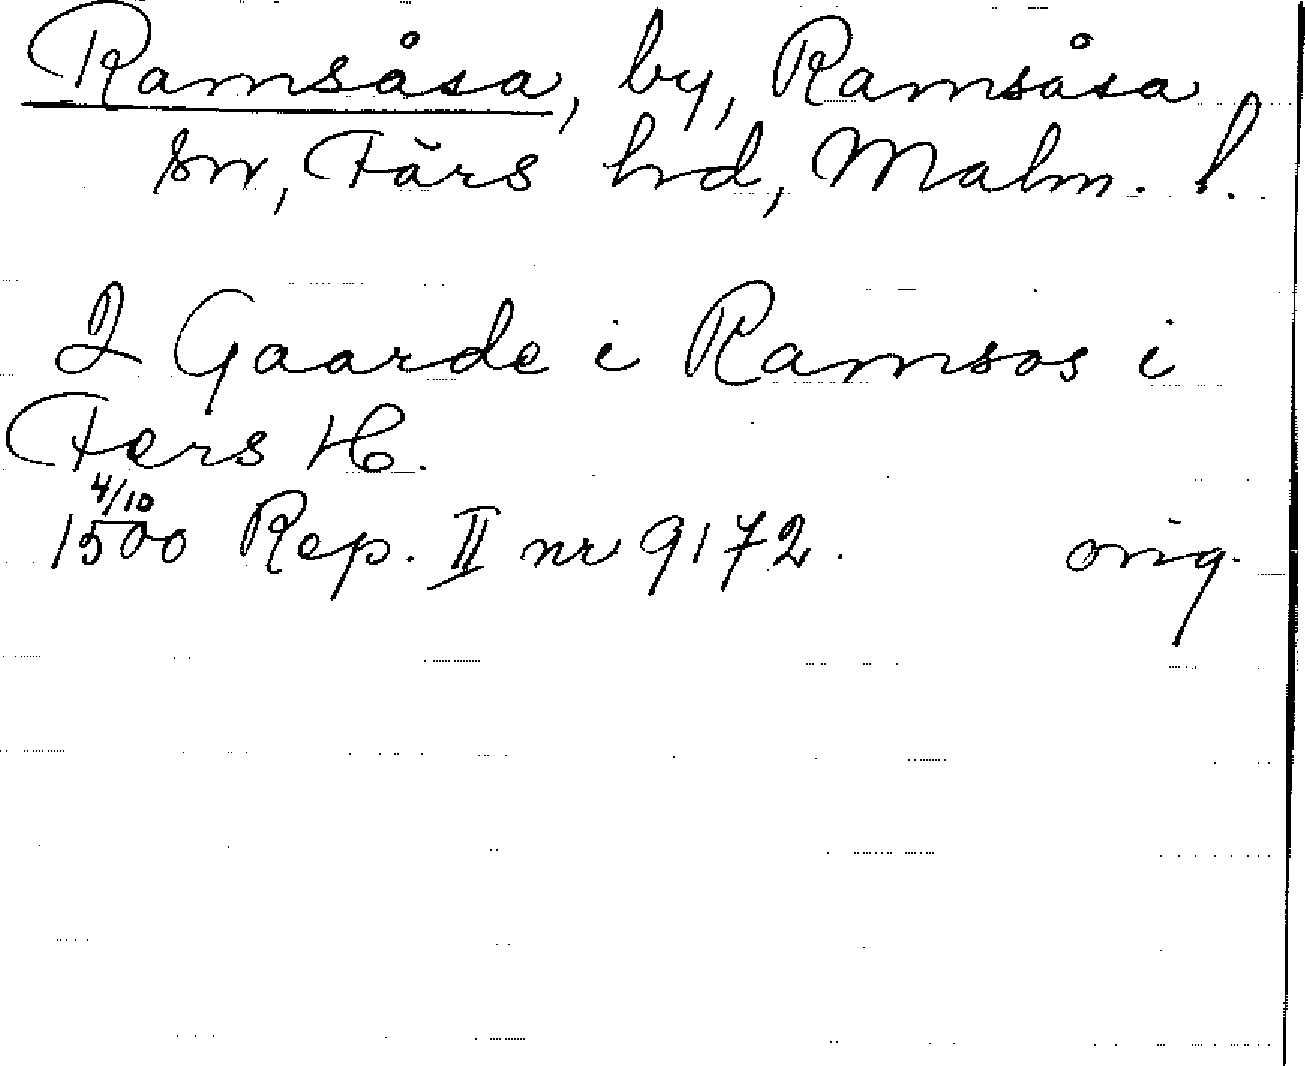 Ramsåsa, by, Ramsåsa
sn, Färs hd, Malm. l.
2 Gaarde i Ramsos i
Fers H.
4/10
1500 Rep. II nr 9172. orig.